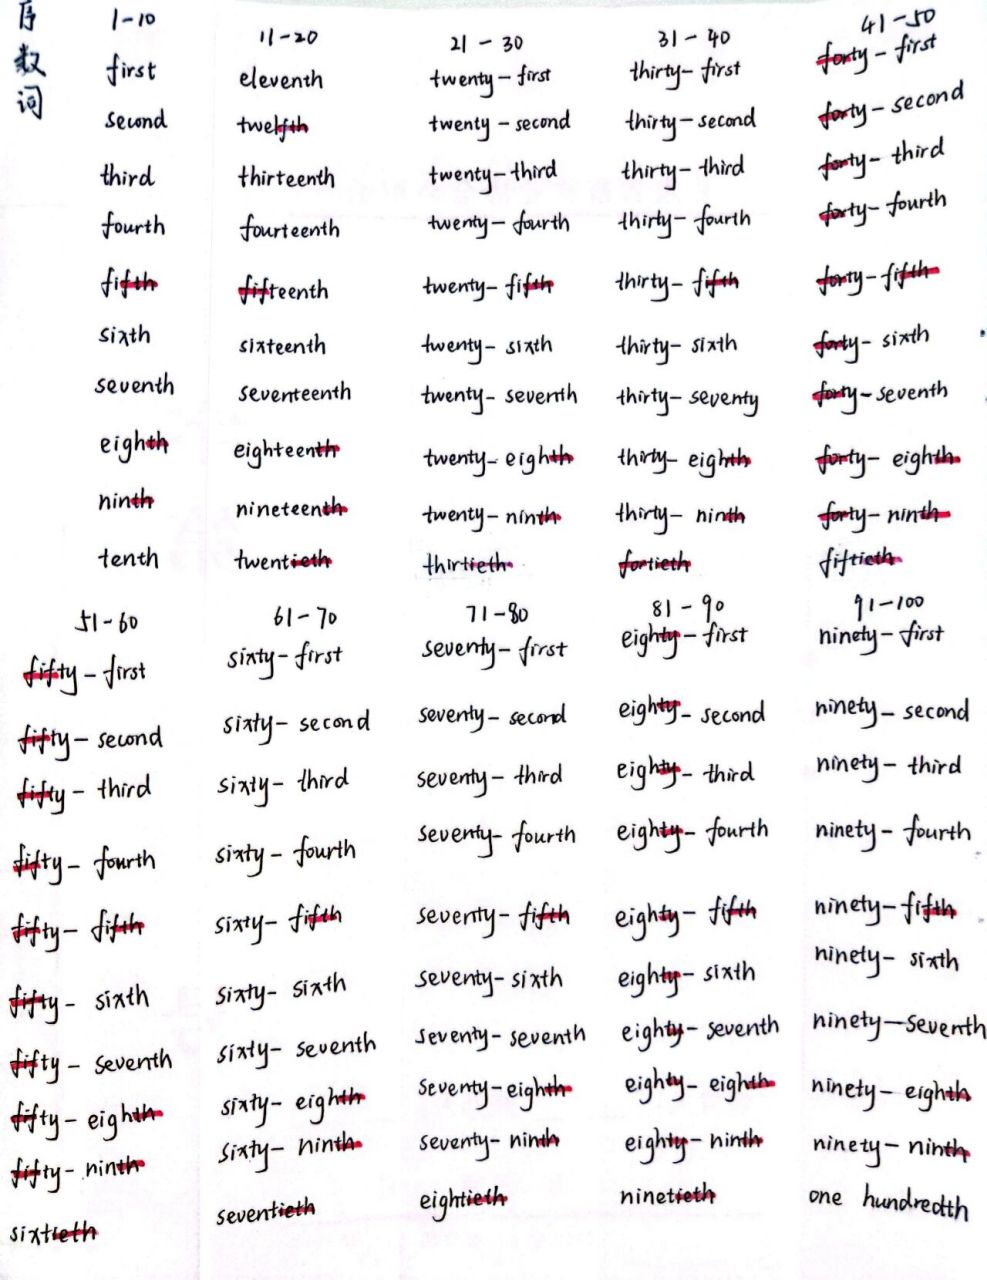 序数词
1-10
first
second
third
fourth
fifth
sixth
seventh
eighth
ninth
tenth
11-20
eleventh
twelfth
thirteenth
fourteenth
fifteenth
sixteenth
seventeenth
eighteenth
nineteenth
twentieth
21 - 30
twenty-first
twenty-second
twenty-third
twenty-fourth
twenty-fifth
twenty-sixth
twenty-seventh
twenty-eighth
twenty-ninth
thirtieth
31 - 40
thirty-first
thirty-second
thirty-third
thirty-fourth
thirty-fifth
thirty-sixth
thirty-seventy
thirty-eighth
thirty-ninth
fortieth
41-50
forty-first
forty-second
forty-third
forty-fourth
forty-fifth
forty-sixth
forty-seventh
forty-eighth
forty-ninth
fiftieth
51-60
fifty-first
fifty-second
fifty-third
fifty-fourth
fifty-fifth
fifty-sixth
fifty-seventh
fifty-eighth
fifty-ninth
sixtieth
61-70
sixty-first
sixty-second
sixty-third
sixty-fourth
sixty-fifth
sixty-sixth
sixty-seventh
sixty-eighth
sixty-ninth
seventieth
71-80
seventy-first
seventy-second
seventy-third
seventy-fourth
seventy-fifth
seventy-sixth
seventy-seventh
seventy-eighth
seventy-ninth
eightieth
81 - 90
eighty-first
eighty-second
eighty-third
eighty-fourth
eighty-fifth
eighty-sixth
eighty-seventh
eighty-eighth
eighty-ninth
ninetieth
91-100
ninety-first
ninety-second
ninety-third
ninety-fourth
ninety-fifth
ninety-sixth
ninety-seventh
ninety-eighth
ninety-ninth
one hundredth